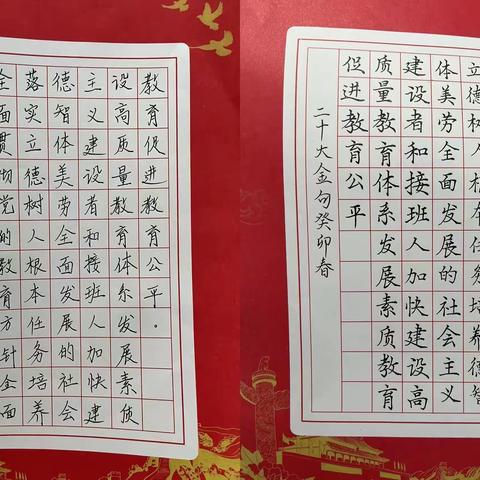 全面贯彻党的教育方针全面
落实立德树人根本任务培养
德智体美劳全面发展的社会
主义建设者和接班人加快建
设高质量教育体系发展素质
教育促进教育公平。
立德树人根本任务培养德智
体美劳全面发展的社会主义
建设者和接班人加快建设高
质量教育体系发展素质教育
促进教育公平
二十大金句癸卯春